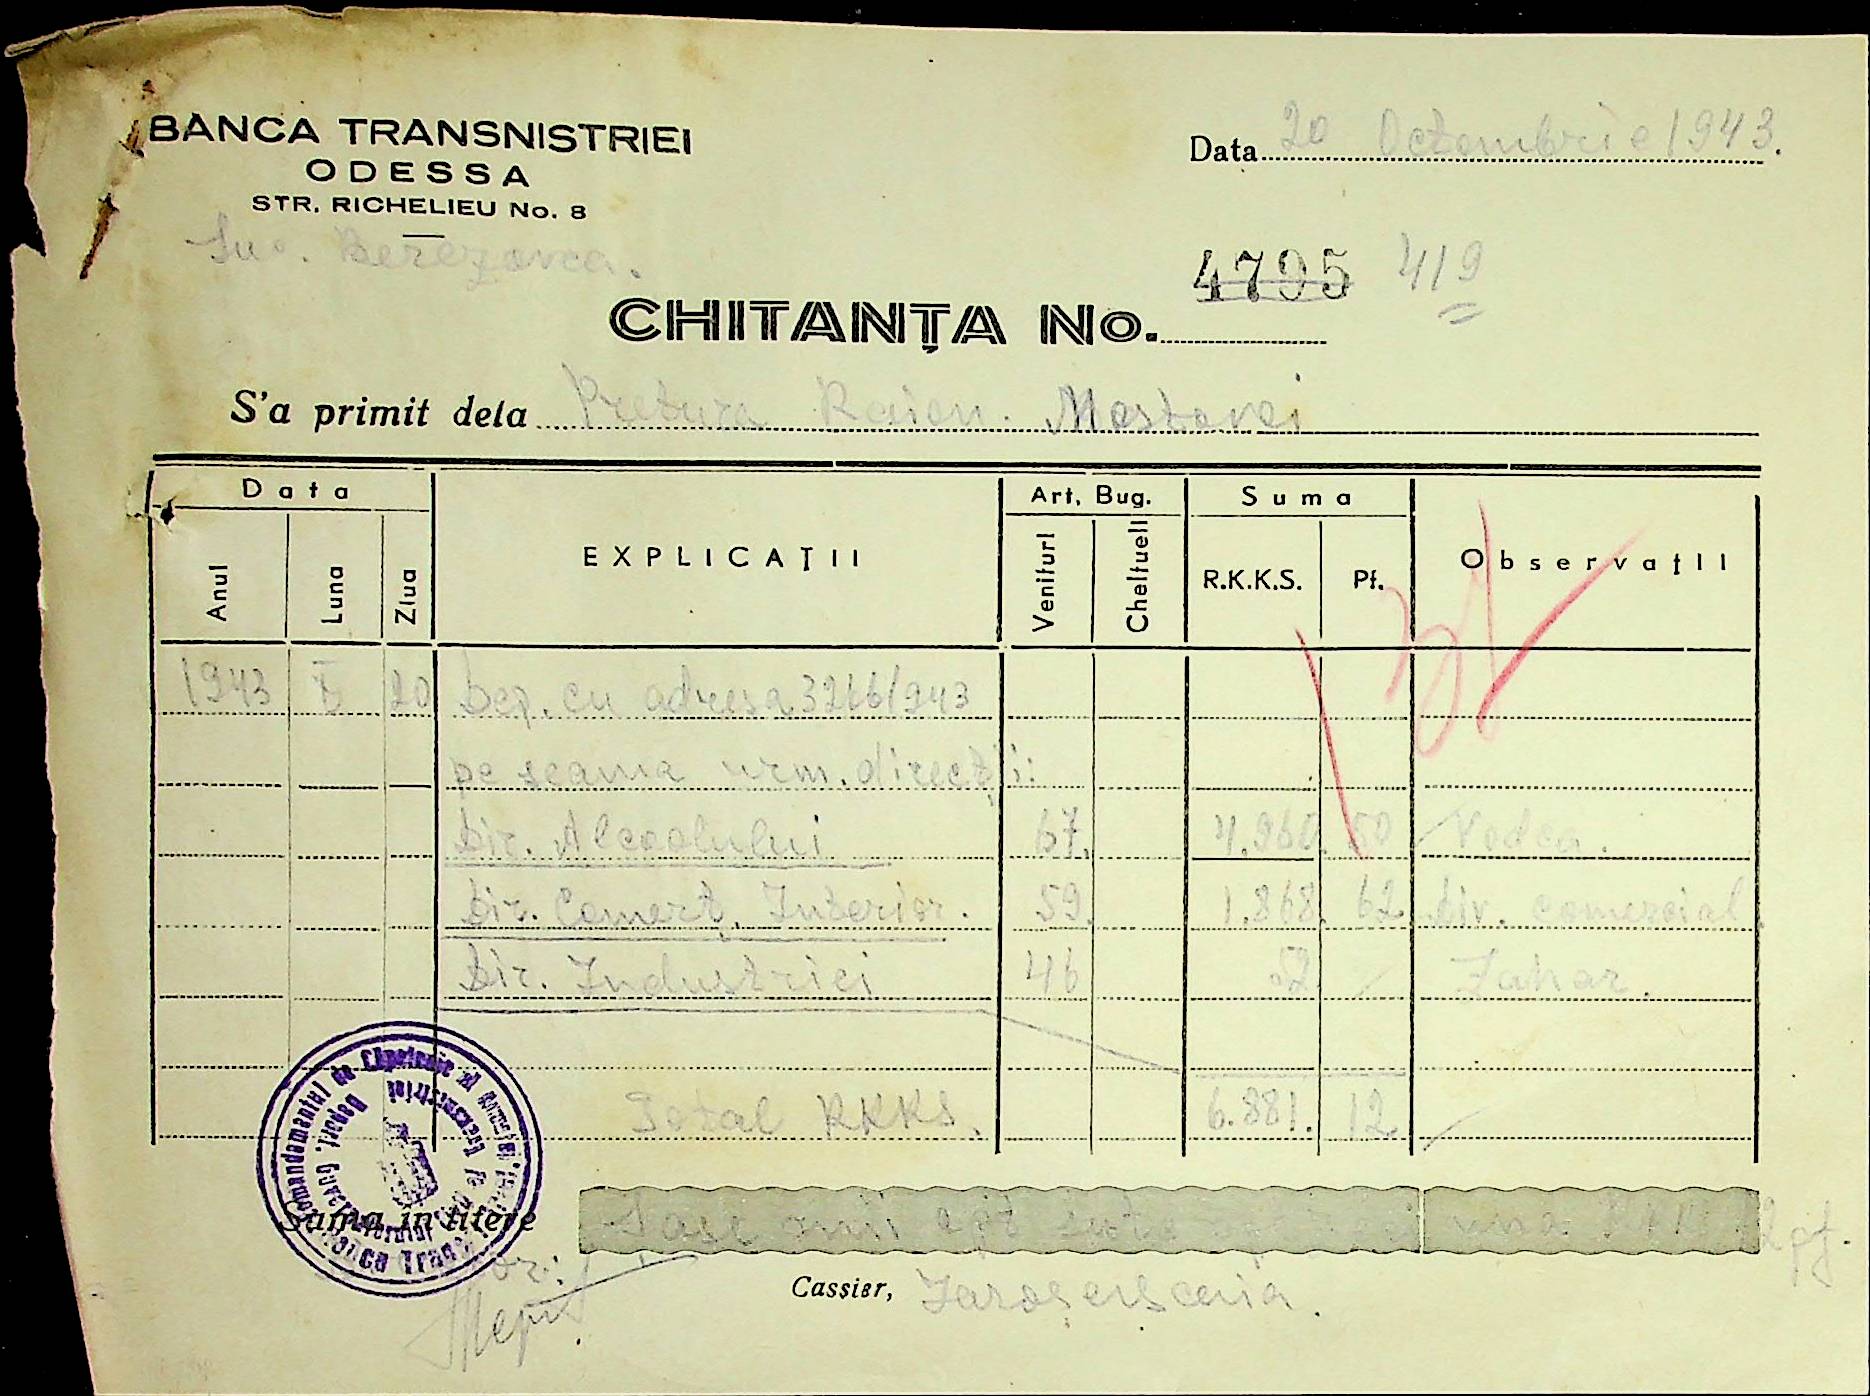 BANCA TRANSNISTRIEI
ODESSA
STR. RICHELIEU No. 8
Suc. Berezovca.
Data 20 Octombrie 1943.
4795 419
CHITANȚA No.
S'a primit dela Pretura Raion. Mostovoi
Data
Anul Luna Ziua
EXPLICAȚII
Art. Bug.
Venituri Cheltueli
Suma
R.K.K.S. Pf.
Observații
1943 X 20 Dep. cu adresa 3266/943
pe seama urm. direcții:
Dir. Alcoolului 67. 4.960. 50 Vodca.
Dir. Comerț. Interior. 59. 1.868. 62 Div. comercial
Dir. Industriei 46 52 Zahar.
Total RKKS. 6.881. 12
Suma in litere Șase mii opt sute una RKKS 12 pf.
Cassier,
Comandamentul de Căpetenie al Armatei
Depart. Guvernământul Transnistriei
Banca